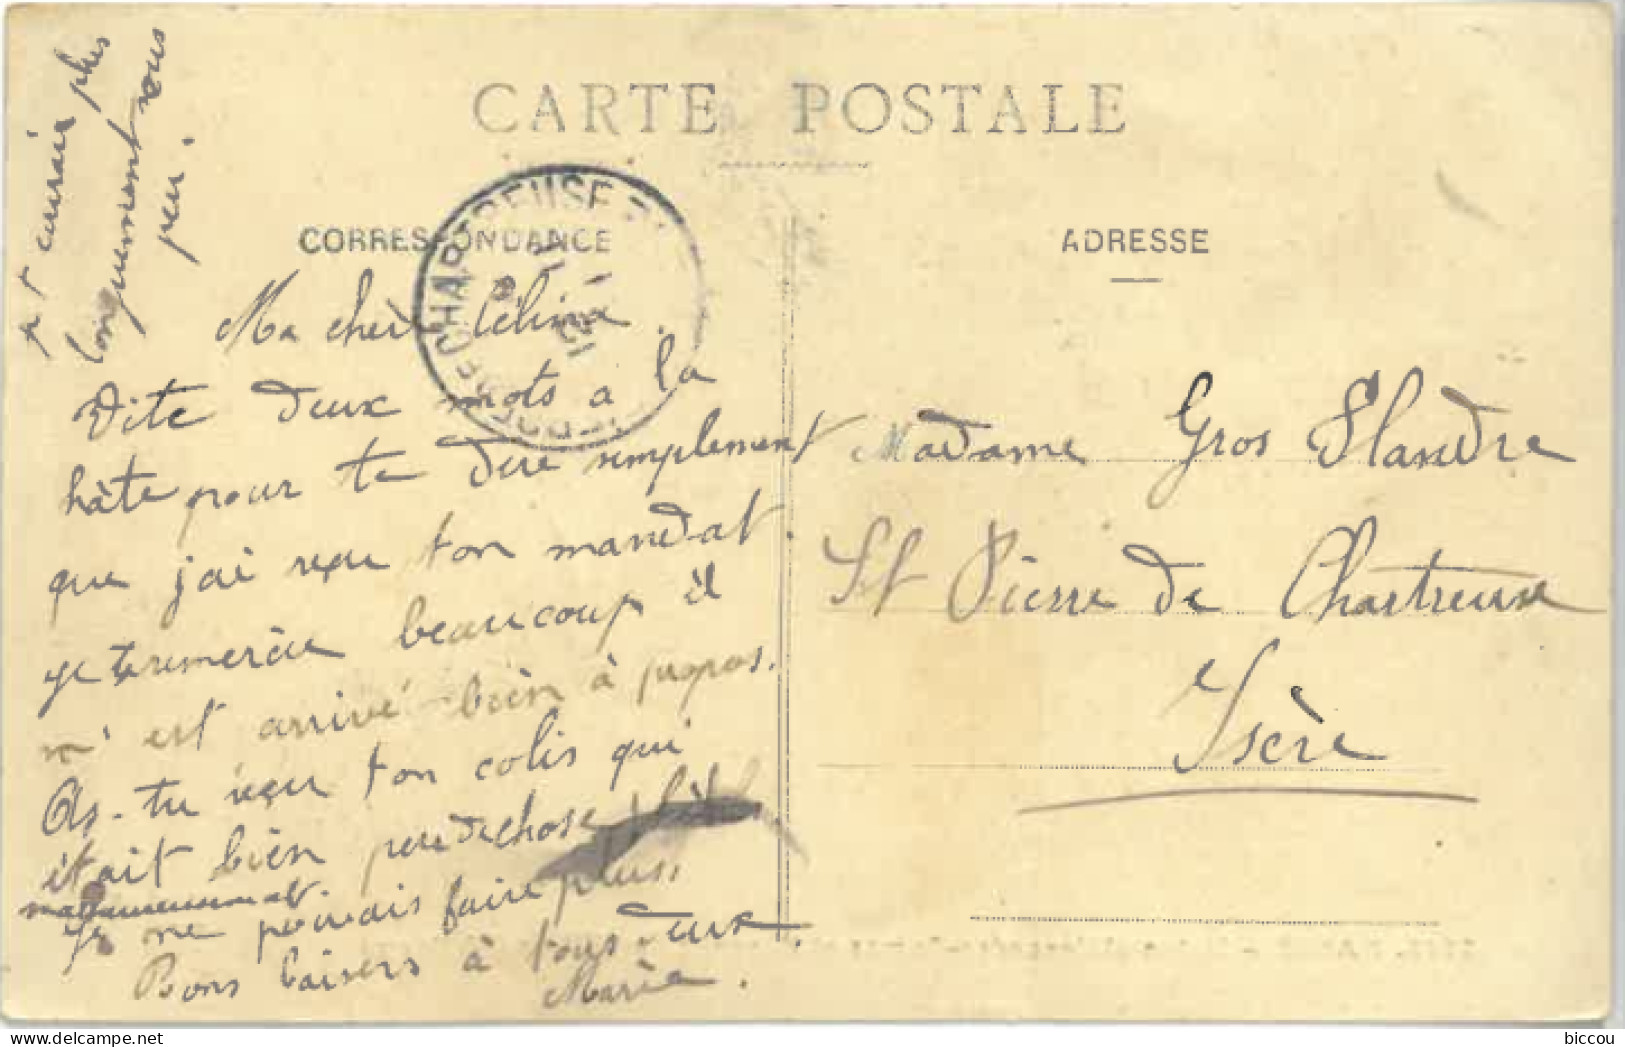 CARTE POSTALE
CORRESPONDANCE
ADRESSE
Ma cher Célina.
Vite deux mots a la
hâte pour te dire simplement
que j'ai reçu ton mandat.
je te remercie beaucoup il
m'est arrivé bien à propos.
As-tu reçu ton colis qui
était bien peu de chose
Je ne pouvais faire plus,
Bons baisers à tous deux.
Marie.
je t'ecrirai plus
longuement sous
peu.
Madame Gros Flandre
St Pierre de Chartreuse
Isère
CHARTREUSE
biccou